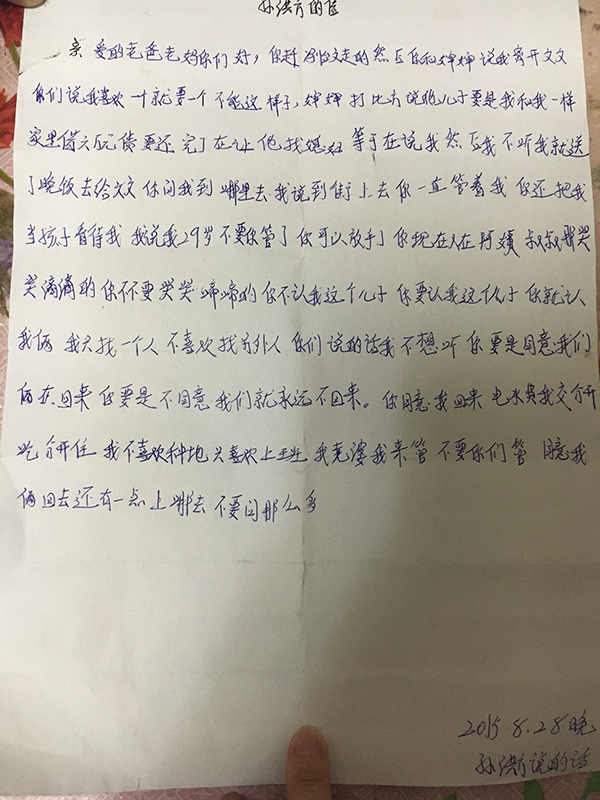 孙洪方的话
亲爱的老爸老妈你们好，你赶冯怡文走的然后你和婶婶说我离开文文
你们说我喜欢一个就要一个不能这样子，婶婶打比方说她儿子要是我和我一样
家里借六万元债要还完了在让他找媳妇等于在说我然后我不听我就送
了晚饭去给文文你问我到哪里去我说到街上去你一直管着我你还把我
当孩子看待我我说我29岁不要你管了你可以放手了你现在人在阿姨叔叔那哭
哭滴滴的你不要哭哭啼啼的你不认我这个儿子你要认我这个儿子你就认
我俩我只找一个人不喜欢找另外人你们说的话我不想听你要是同意我们
俩在回来你要是不同意我们就永远不回来。你同意我回来电水费我交分开
吃分开住我不喜欢种地只喜欢上班我老婆我来管不要你们管同意我
俩回去还有一点上哪去不要问那么多
2015.8.28晚
孙洪方说的话